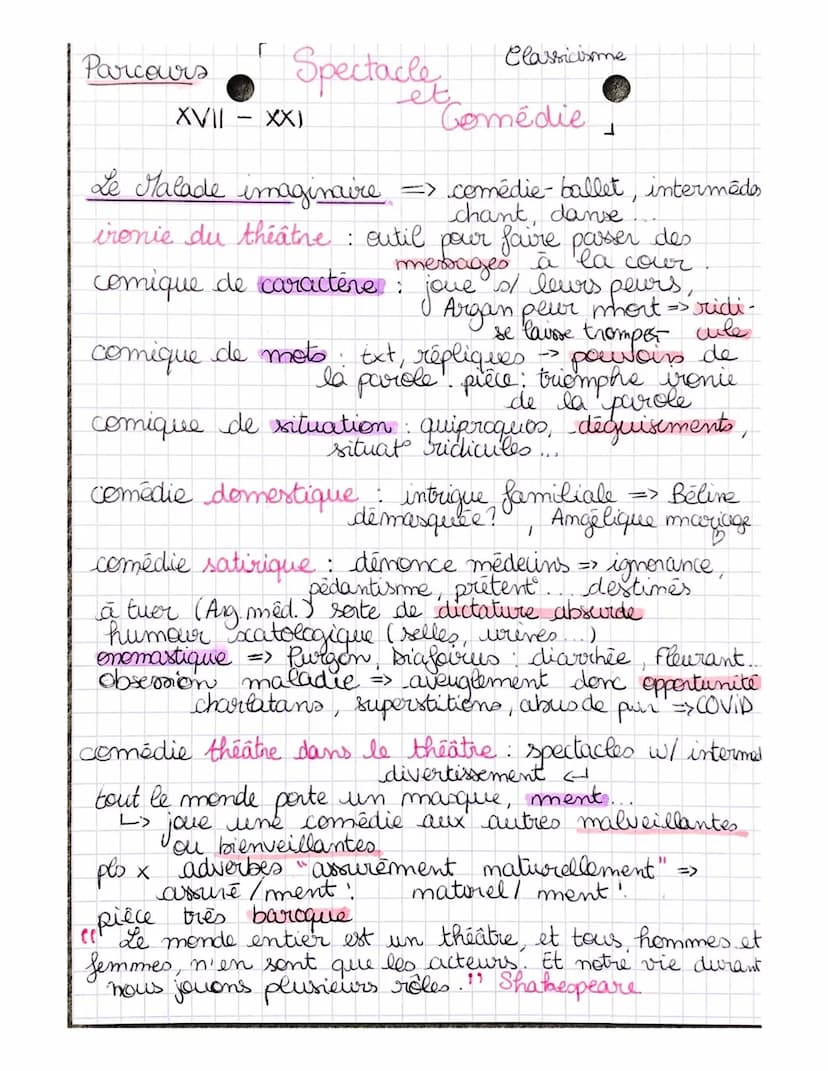 Parcours
Spectacle
et
Comédie
Classicisme
XVII - XXI
Le Malade imaginaire => comédie-ballet, intermèdes
chant, danse...
ironie du théâtre : outil pour faire passer des
messages à la cour.
comique de caractère : joue s/ leurs peurs,
Argan peur mort => ridi-
se laisse tromper cule
comique de mots : txt, répliques -> pouvoirs de
la parole. pièce : triomphe ironie
de la parole
comique de situation : quiproquos, déguisements,
situat° ridicules...
comédie domestique : intrigue familiale => Béline
démasquée ?, Angélique mariage
comédie satirique : dénonce médecins => ignorance,
pédantisme, prétent°... destinés
à tuer (Arg. méd.) sorte de dictature absurde
humour scatologique (selles, urines...)
onomastique => Purgon, Diafoirus : diarrhée, Fleurant...
obsession maladie => aveuglement donc opportunité
charlatans, superstitions, abus de => COVID
comédie théâtre dans le théâtre : spectacles w/ intermed
divertissement ↵
tout le monde porte un masque, ment...
↳ joue une comédie aux autres malveillantes
ou bienveillantes
pls x adverbes "assurément naturellement" =>
assuré / ment ! naturel / ment !
pièce très baroque
"Le monde entier est un théâtre, et tous, hommes et
femmes, n'en sont que les acteurs. Et notre vie durant
nous jouons plusieurs rôles." Shakespeare